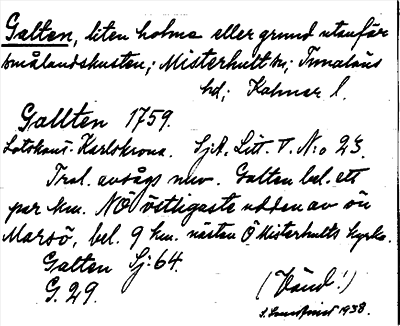 Galten, liten holme eller grund utanför
Smålandskusten; Misterhult sn; Tunaläns
hd; Kalmar l.
Gallten 1759.
Lotskont. Karlskrona. Sjk. Litt. V. No 23.
Trol. avsågs nuv. Galten bel. ett
par km. NO östligaste udden av ön
Marsö, bel. 9 km. nästan Ö Misterhults kyrka.
Galten Sj: 64.
G. 29.
(Vänd!)
1938.